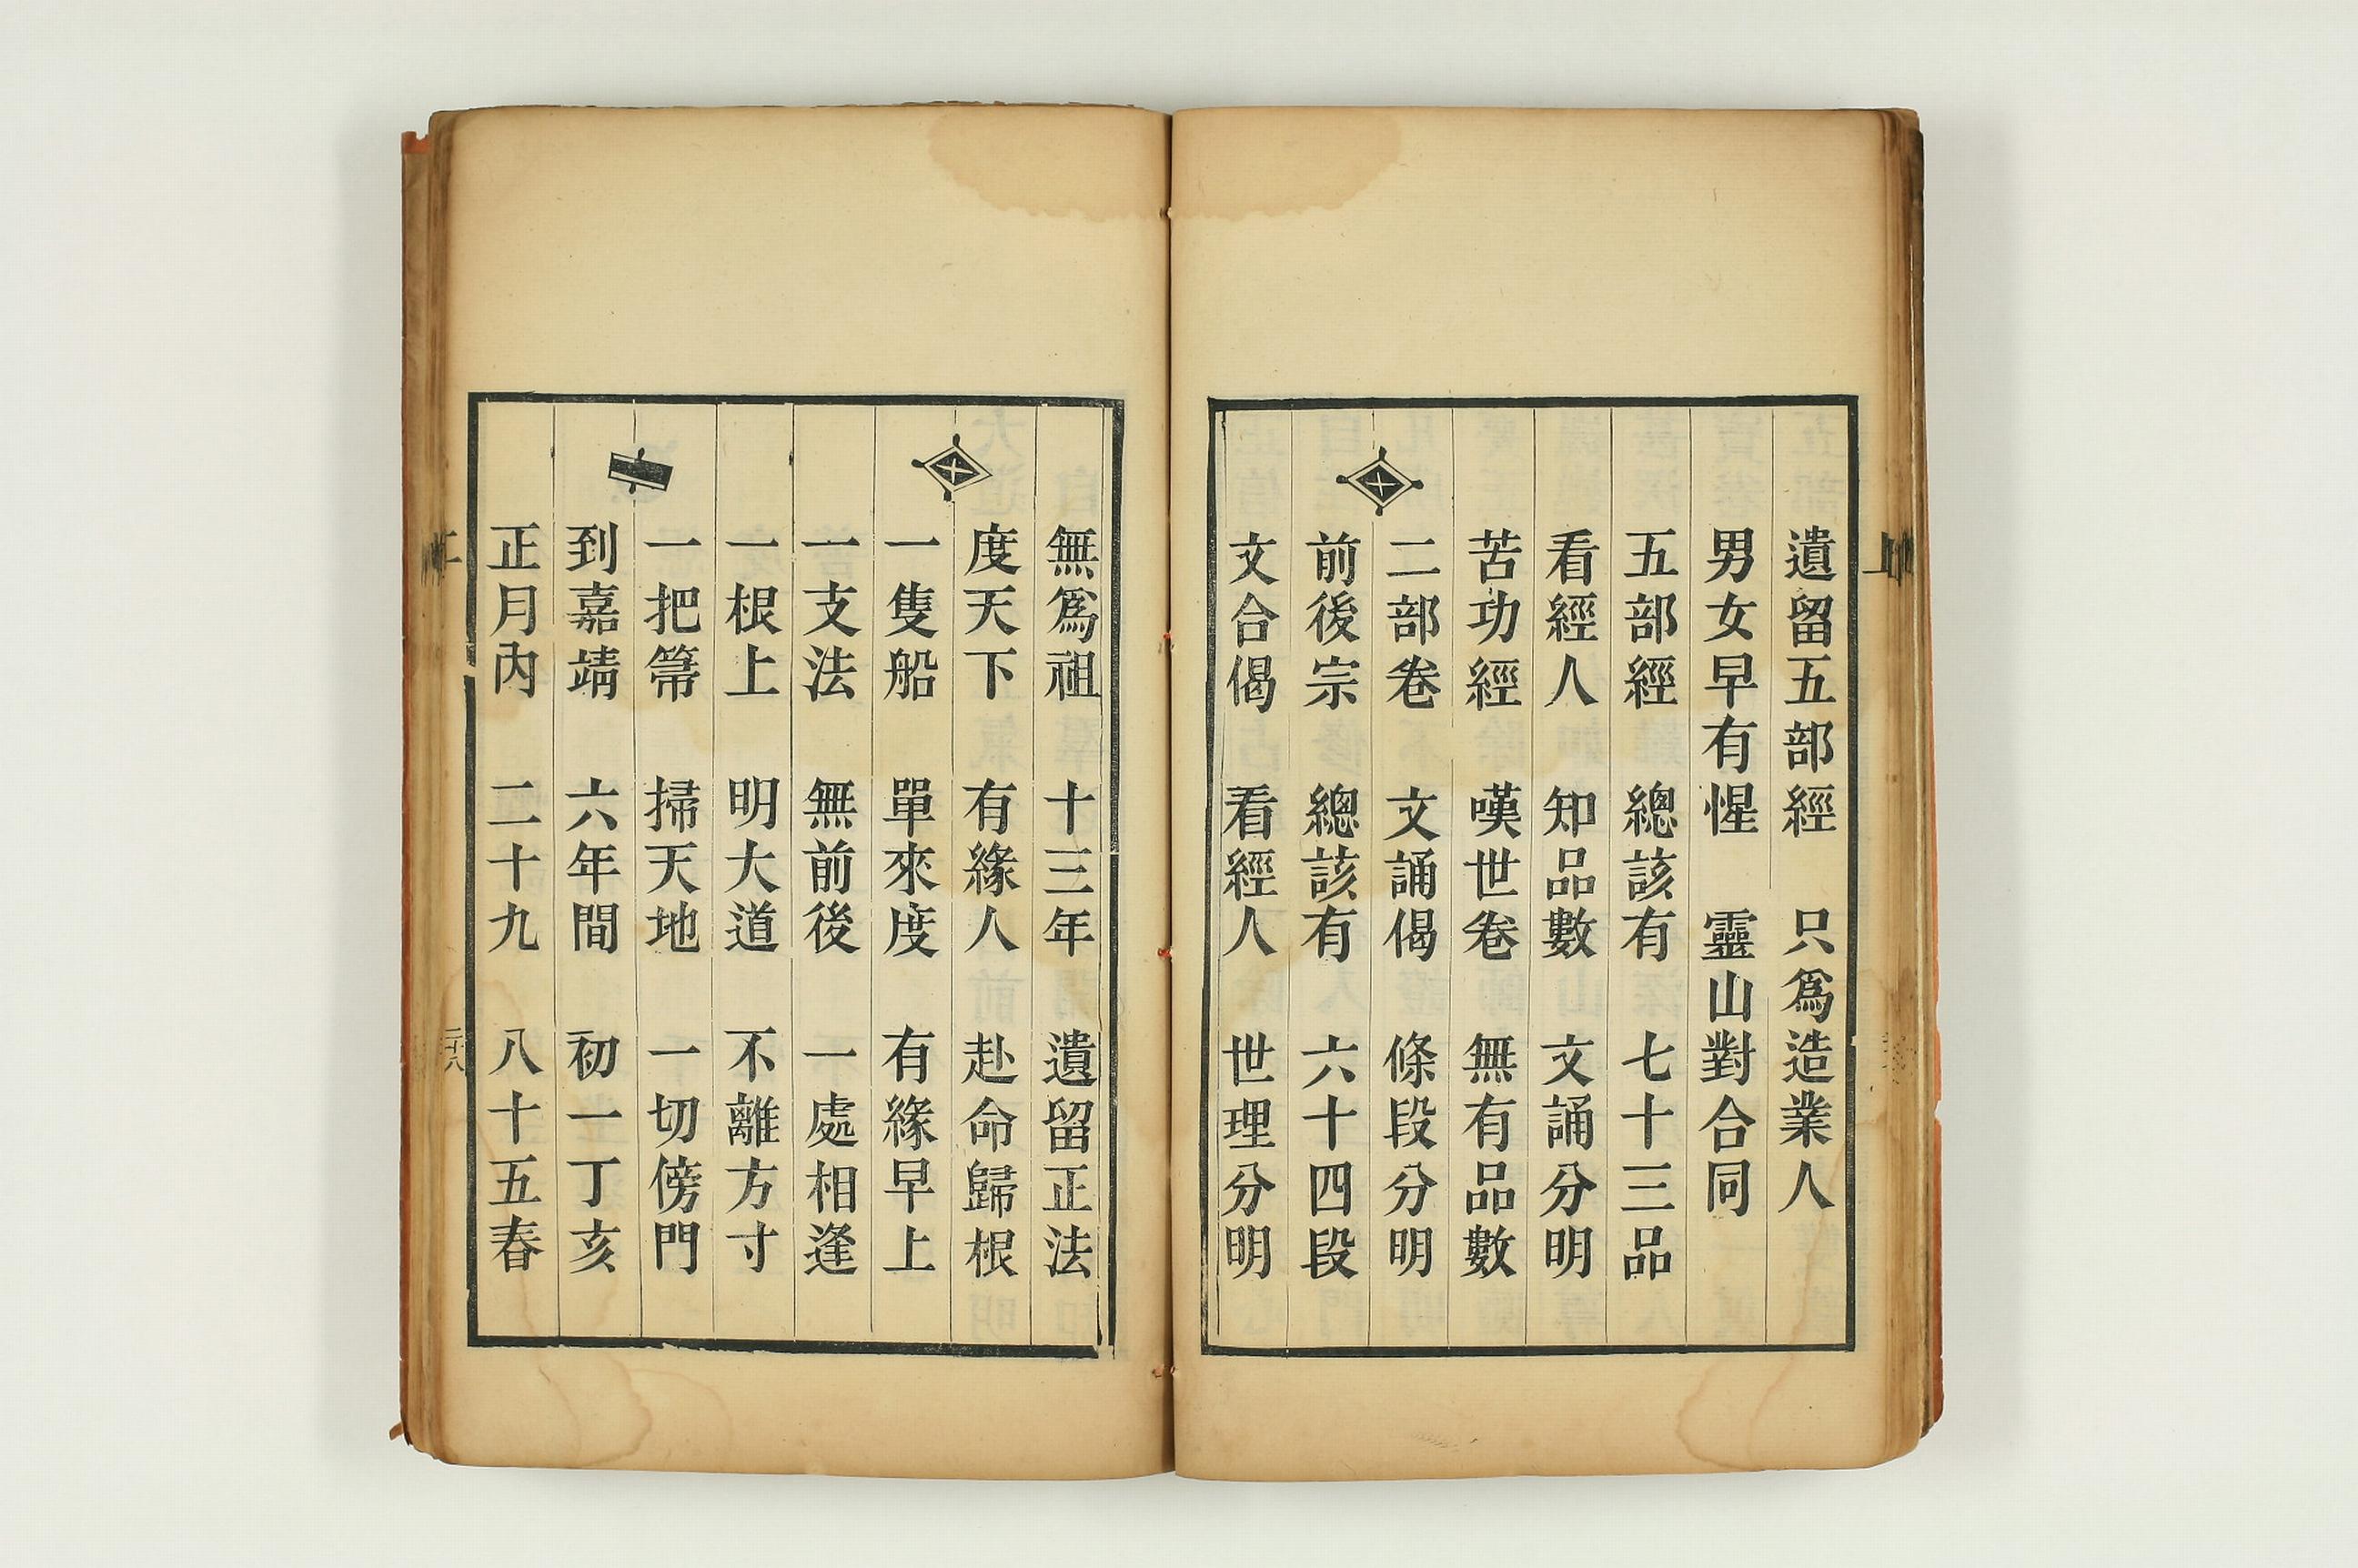 遺留五部經　只爲造業人
男女早有惺　靈山對合同
五部經　總該有　七十三品
看經人　知品數　文誦分明
苦功經　嘆世卷　無有品數
二部卷　文誦偈　條段分明
前後宗　總該有　六十四段
文合偈　看經人　世理分明
無爲祖　十三年　遺留正法
度天下　有緣人　赴命歸根
一隻船　單來度　有緣早上
一支法　無前後　一處相逢
一根上　明大道　不離方寸
一把箒　掃天地　一切傍門
到嘉靖　六年間　初一丁亥
正月內　二十九　八十五春